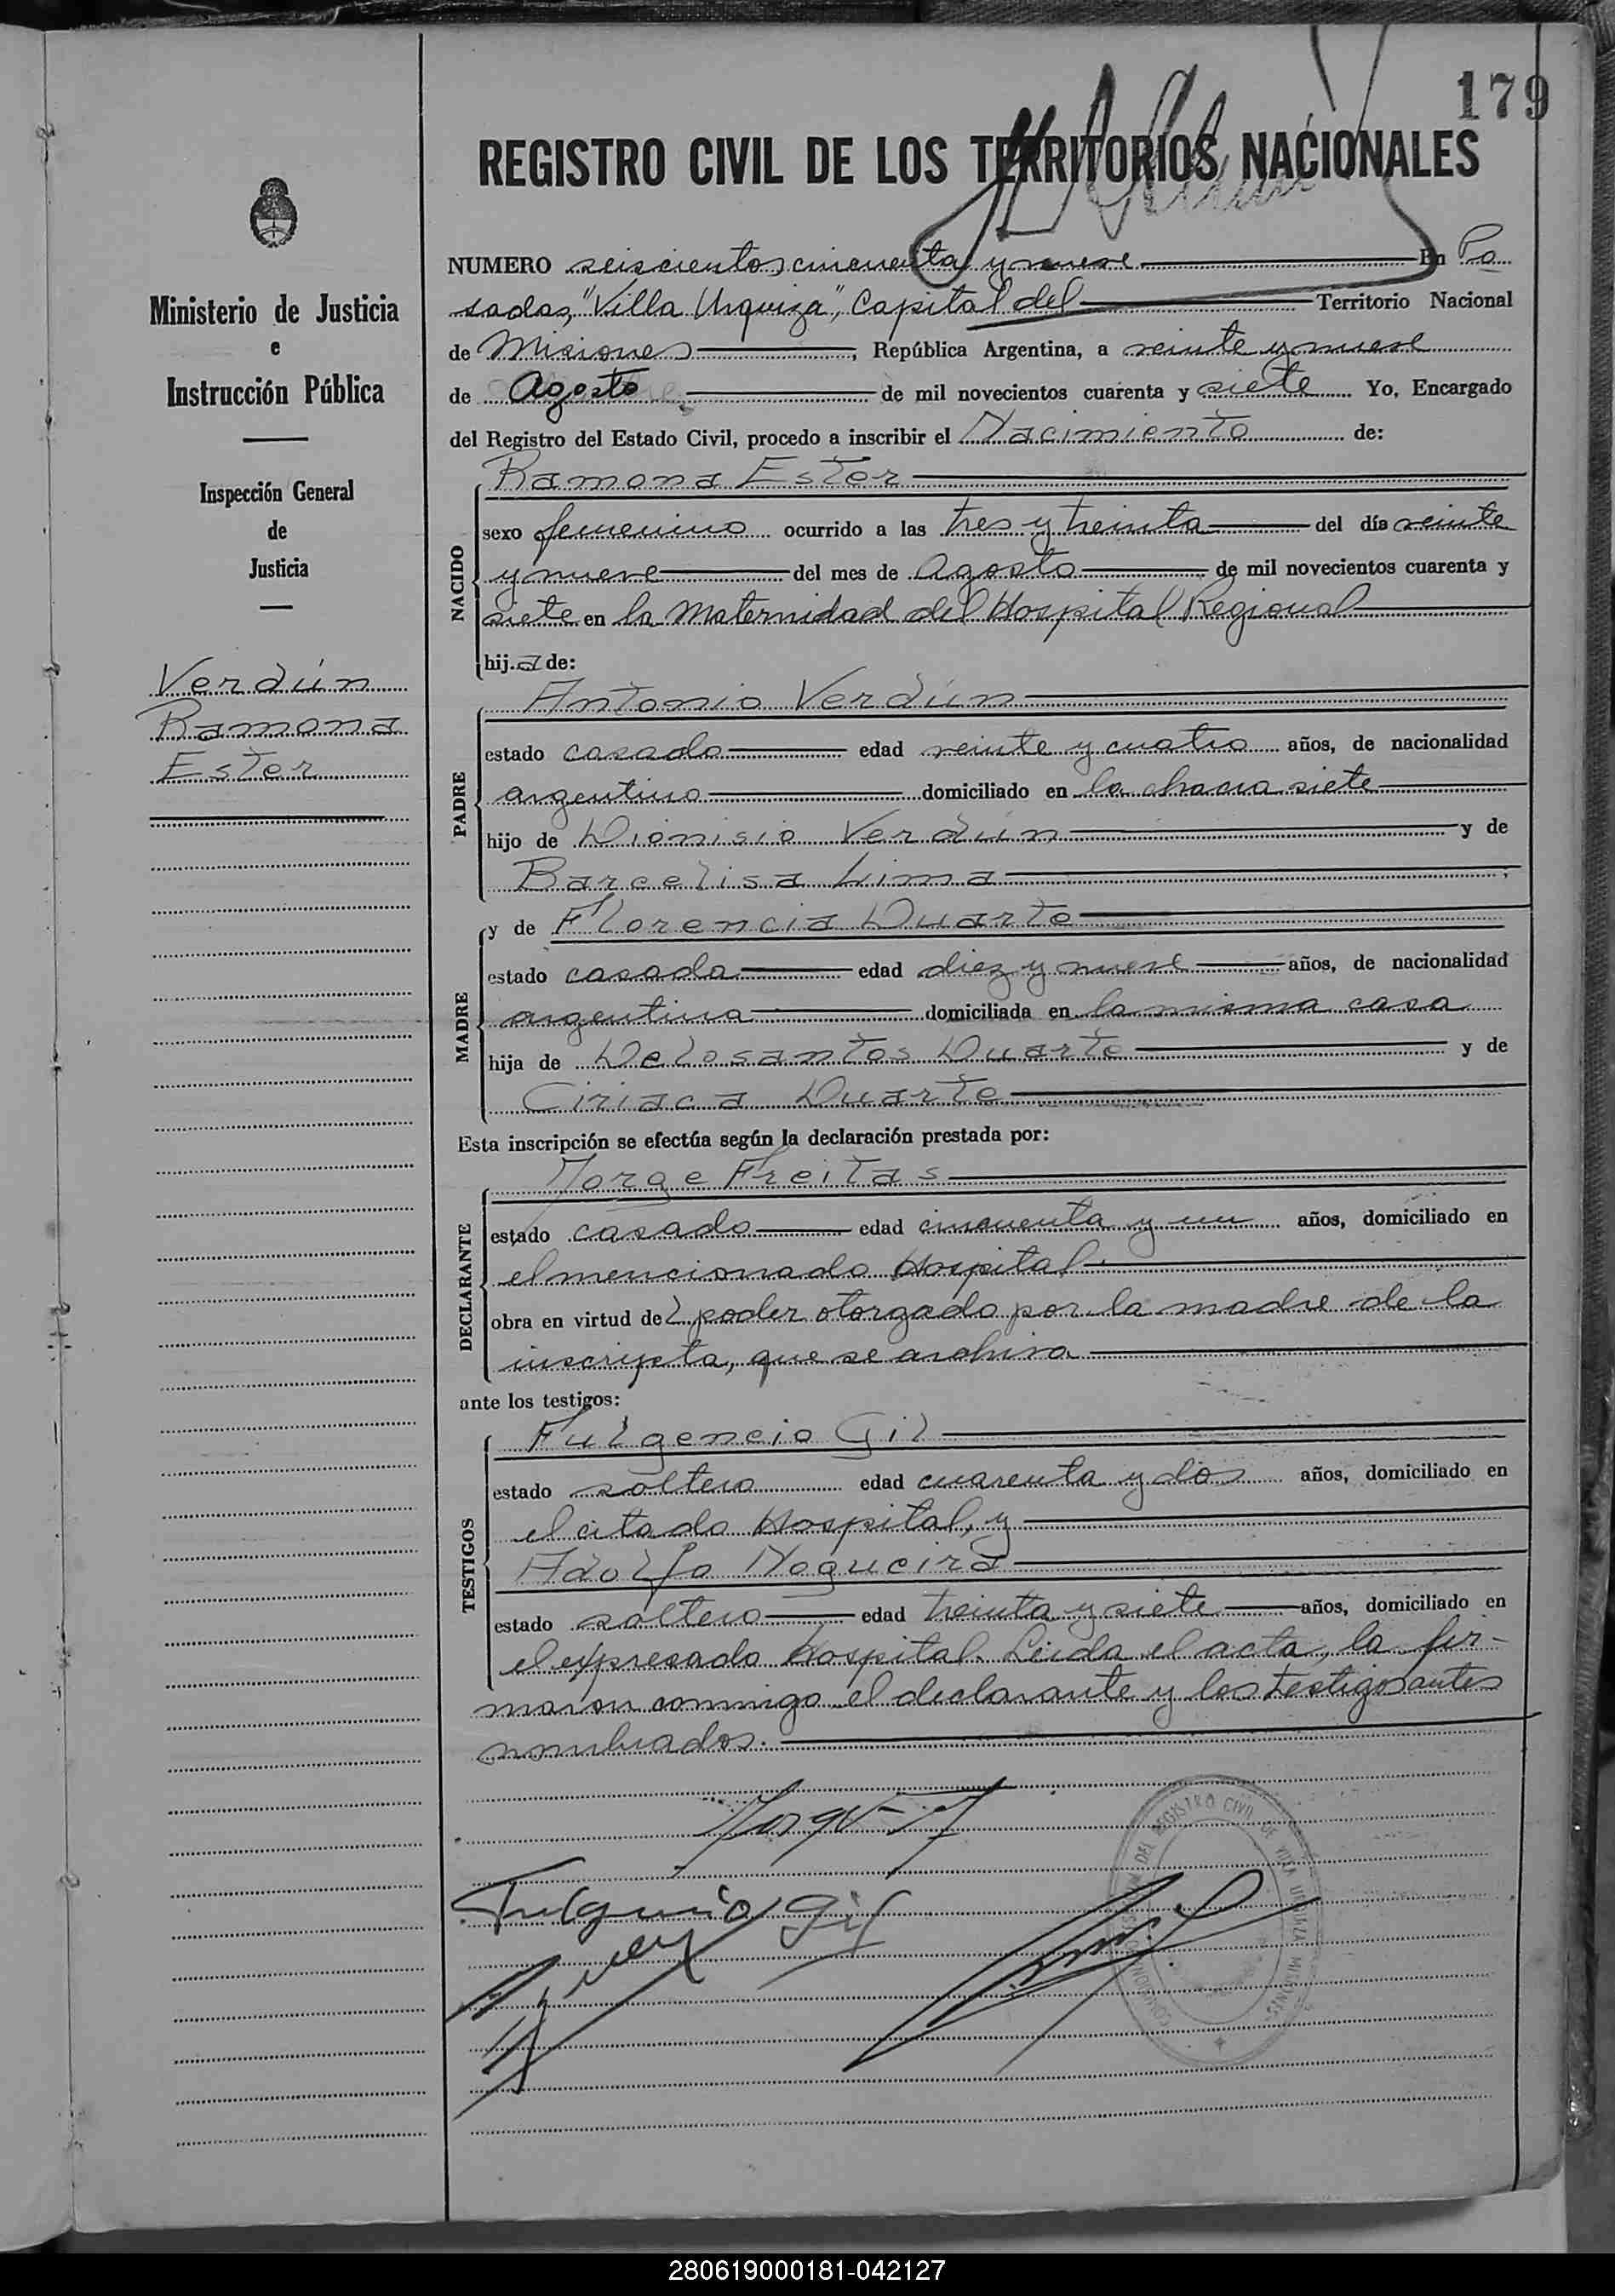 179
REGISTRO CIVIL DE LOS TERRITORIOS NACIONALES
Ministerio de Justicia
e
Instrucción Pública
Inspección General
de
Justicia
Verdún
Ramona
Ester
NUMERO seiscientos cincuenta y nueve En Po
sadas, "Villa Urquiza", Capital del Territorio Nacional
de Misiones, República Argentina, a veinte y nueve
de Agosto de mil novecientos cuarenta y siete Yo, Encargado
del Registro del Estado Civil, procedo a inscribir el Nacimiento de:
Ramona Ester
NACIDO
sexo femenino ocurrido a las tres y treinta del día veinte
y nueve del mes de Agosto de mil novecientos cuarenta y
siete en la Maternidad del Hospital Regional
hij a de:
Antonio Verdún
PADRE
estado casado edad veinte y cuatro años, de nacionalidad
argentino domiciliado en la chacra siete
hijo de Dionisio Verdún y de
Barcelisa Lima,
y de Florencia Duarte
MADRE
estado casada edad diez y nueve años, de nacionalidad
argentina domiciliada en la misma casa
hija de Delosantos Duarte y de
Ciriaca Duarte
Esta inscripción se efectúa según la declaración prestada por:
Jorge Freitas
DECLARANTE
estado casado edad cincuenta y un años, domiciliado en
el mencionado Hospital.
obra en virtud del poder otorgado por la madre de la
inscripta, que se archiva
ante los testigos:
Fulgencio Gil
TESTIGOS
estado soltero edad cuarenta y dos años, domiciliado en
el citado Hospital, y
Adolfo Nogueira
estado soltero edad treinta y siete años, domiciliado en
el expresado Hospital. Leida el acta, la fir-
maron conmigo el declarante y los testigos antes
nombrados.
Fulgencio Gil
DEL REGISTRO CIVIL DE VILLA URQUIZA MISIONES
280619000181-042127